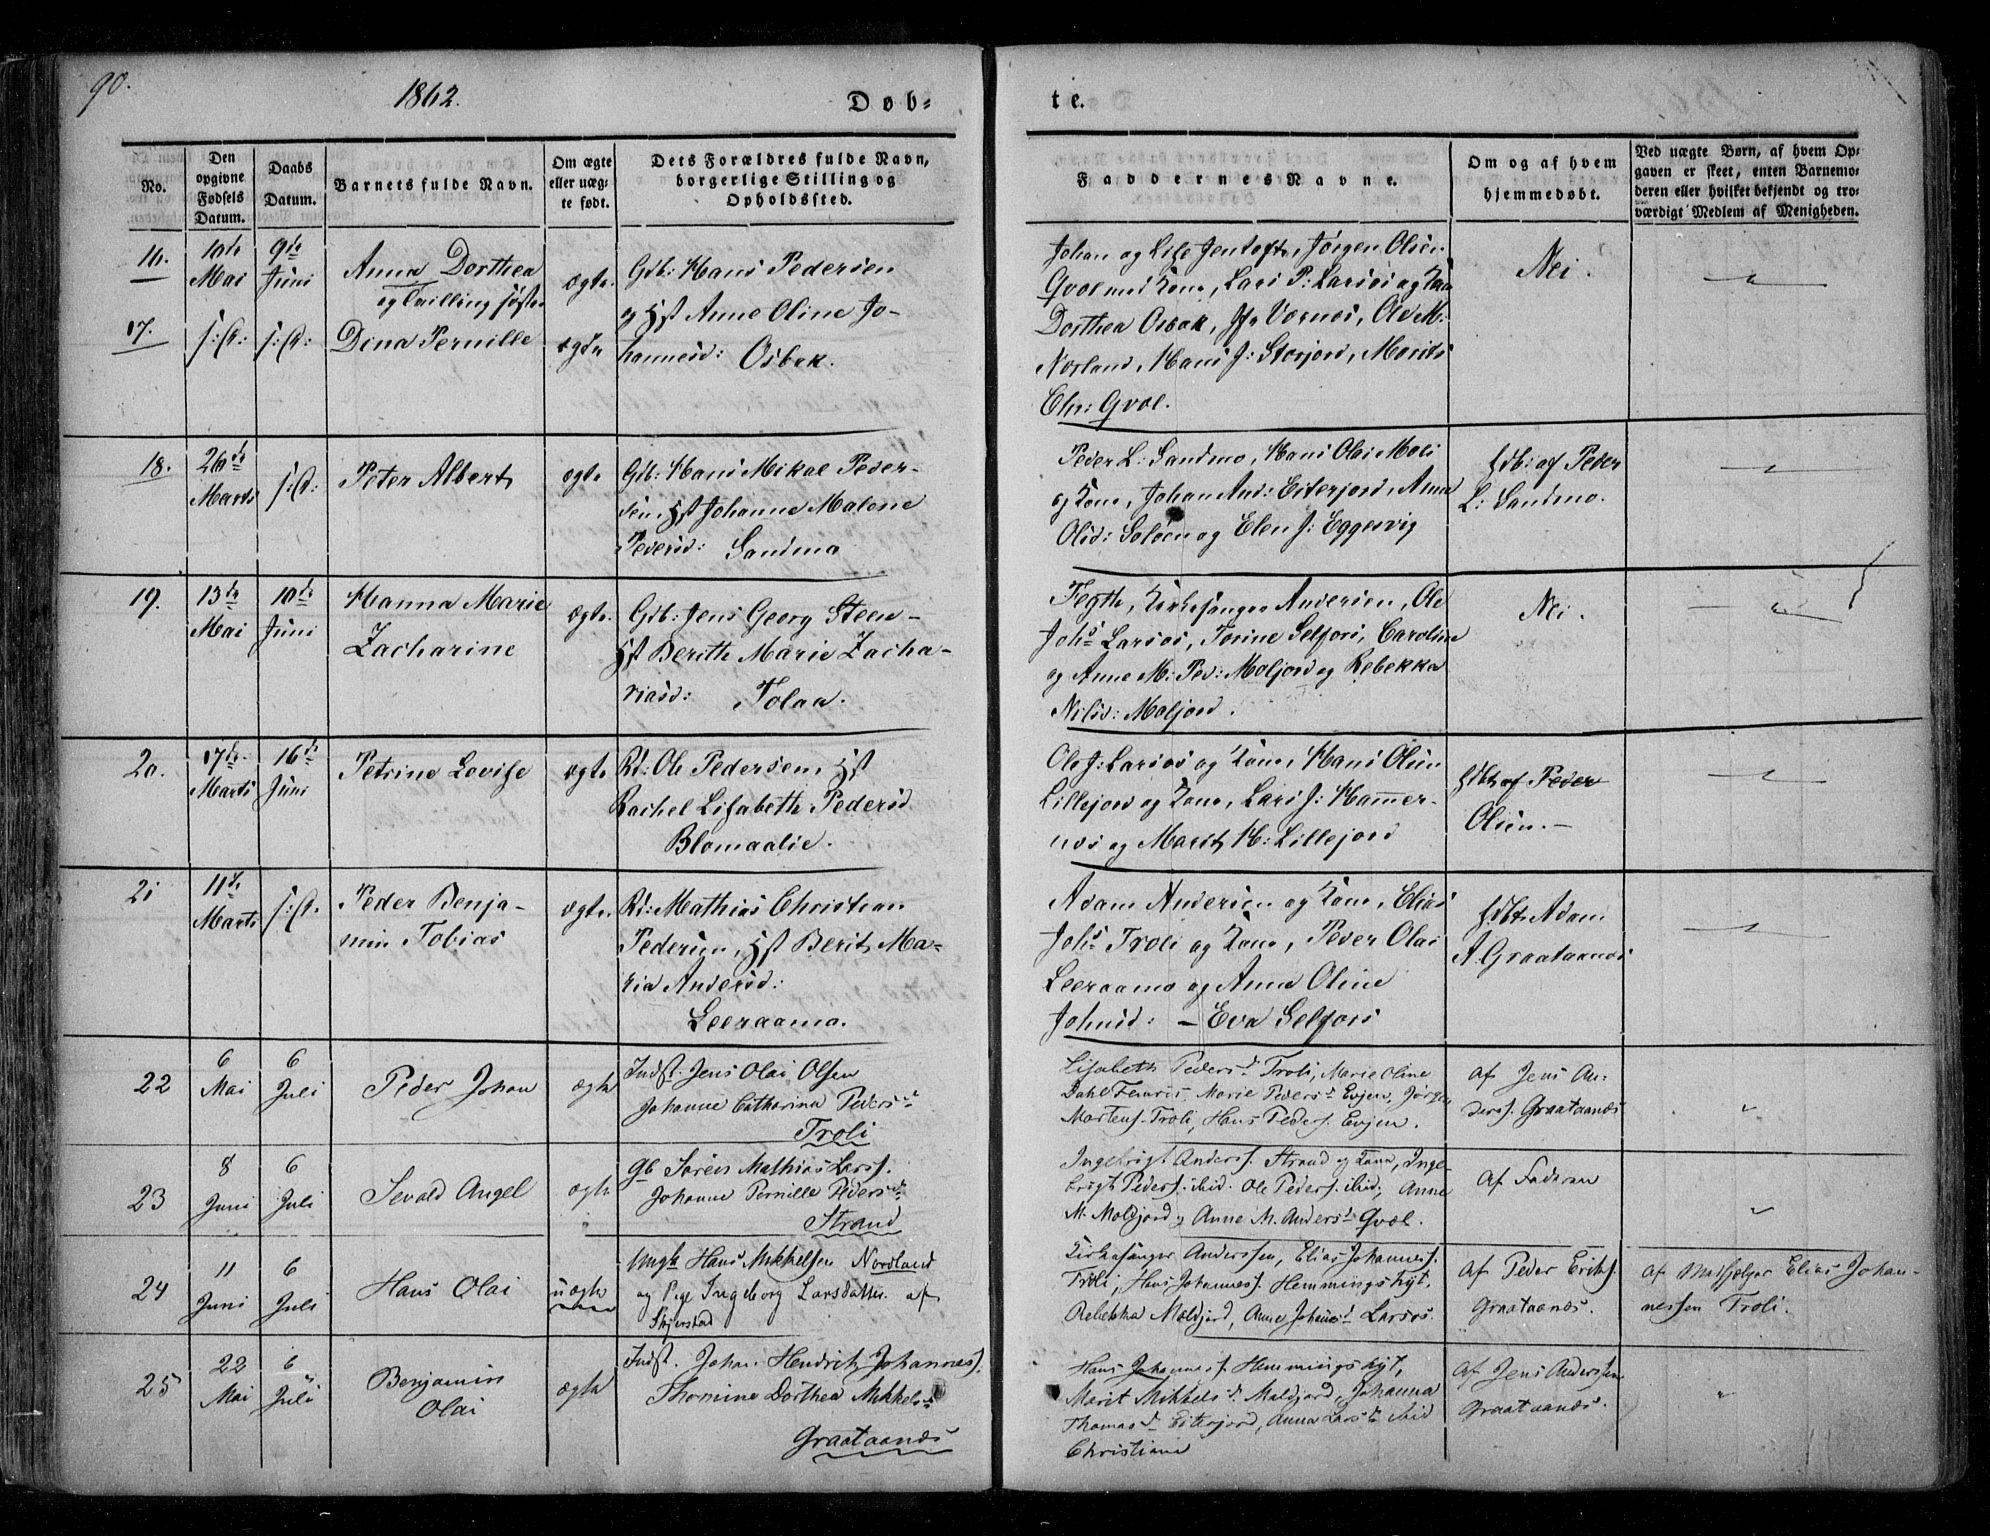 90.
1862.
Døb=
te.
No.
Den
opgivne
Fødsels
Datum.
Daabs
Datum.
Barnets fulde Navn.
Om ægte
eller uæg-
te født.
Dets Forældres fulde Navn,
borgerlige Stilling og
Opholdssted.
Faddernes Navne.
Om og af hvem
hjemmedøbt.
Ved uægte Børn, af hvem Op-
gaven er skeet, enten Barnemo-
deren eller hvilket bekjendt og tro-
værdigt Medlem af Menigheden.
16.
10de
Mai
9de
Juni
Anna Dorthea
og Tvilling søster
ægte
Gdb: Hans Pedersen
og Hst Anne Oline Jo-
hannesd: Osbak.
Johan og Lise Jentoft, Jørgen Olsen
Qvol med Kone, Lars P: Larsos og Kone
Dorthea Osbak, Vornes, Ole M:
Norland, Hans J: Storjord, Morits
Chr: Qvol.
Nei.
17.
s: D:
s: D:
Dina Pernille
ægte
18.
26de
Marts
s: D:
Peter Albert
ægte
Gdb: Hans Mikal Peder-
sen, Hst Johanna Malene
Pedersd: Sandmo
Peder L: Sandmo, Hans Olsi Moli
og Kone, Johan And: Eiterjord, Anna
Olsd: Soløen og Elen J: Eggesvig
Hdb: af Peder
L: Sandmo.
19.
13de
Mai
10de
Juni
Hanna Marie
Zacharine
ægte.
Gdb: Jens Georg Steen-
Hst Berith Marie Zacha-
riasd: Tolaa.
Fegth, Kirkesanger Andersen, Ole
Johs Larsos, Torine Selfors, Caroline
og Anne M: Ped: Moljord og Rebekka
Nilsd: Moljord.
Nei.
20.
17de
Marts
16de
Juni
Petrine Lovise
ægte
Rd: Ole Pedersen, Hst
Rachel Lisabeth Pedersd
Blomaalie.
Ole J: Larsos og Kone, Hans Olsen
Lillejord og Kone, Lars J: Hammer-
nes og Marit H: Lillejord
Hdbt af Peder
Olsen.-
21
11de
Marts
s: D.
Peder Benja-
min Tobias
ægte.
Rd: Mathias Christian
Pedersen, Hst Berit Ma-
ria Andersd:
Leeraamo.
Adam Andersen og Kone, Elias
Johs Troli og Kone, Peder Olai
Leeraamo og Anna Oline
Johnsd: - Eva Selfors
Hdbt Adam
A. Graataanes
22
6
Mai
6
Juli
Peder Johan
ægte
Indst. Jens Olai Olsen
Johanne Catharina Pedersd
Troli
Lisabeth Pedersd Troli, Marie Oline
Dahl, Marie Pedersd Evjen, Jørgen
Mortens. Troli, Hans Peders. Evjen.
Af Jens An-
ders. Graataanes
23
8
Juni
6
Juli
Sevald Angel
ægte
Gb Søren Mathias Lars.
Johanne Pernille Pedersd
Strand
Ingebrigt Anders. Strand og Kone, Inge-
brigt Peders. ibid. Ole Peders. ibid, Anne
M. Moldjord, Anne M. Andersd Qvæl.
Af Faderen
24
11
Juni
6
Juli
Hans Olai
uægte
Ungk Hans Mikkelsen Nordland
og Pige Ingeborg Larsdatter af
Skjerstad
Kirkesanger Anderssen, Elias Johannes.
Troli, Hans Johannes. Hemmingshyt,
Rebekka Moldjord, Anne Johansd Larsos.
Af Peder Eriks.
Graataanes.
Af Medhjælper Elias Johan-
nessen Troli.
25
22
Mai
6
Juli
Benjamin
Olai
ægte
Indst. Johan Hendrik Johannes.
Thomine Dorthea Mikkelsd
Graataanæs
Hans Johannes. Hemmingshyt,
Marit Mikkelsd Moldjord, Johanna
Thomasd Eiterjord, Anna Larsd ibid
Christiane
Af Jens Anderssen
Graataanæs.